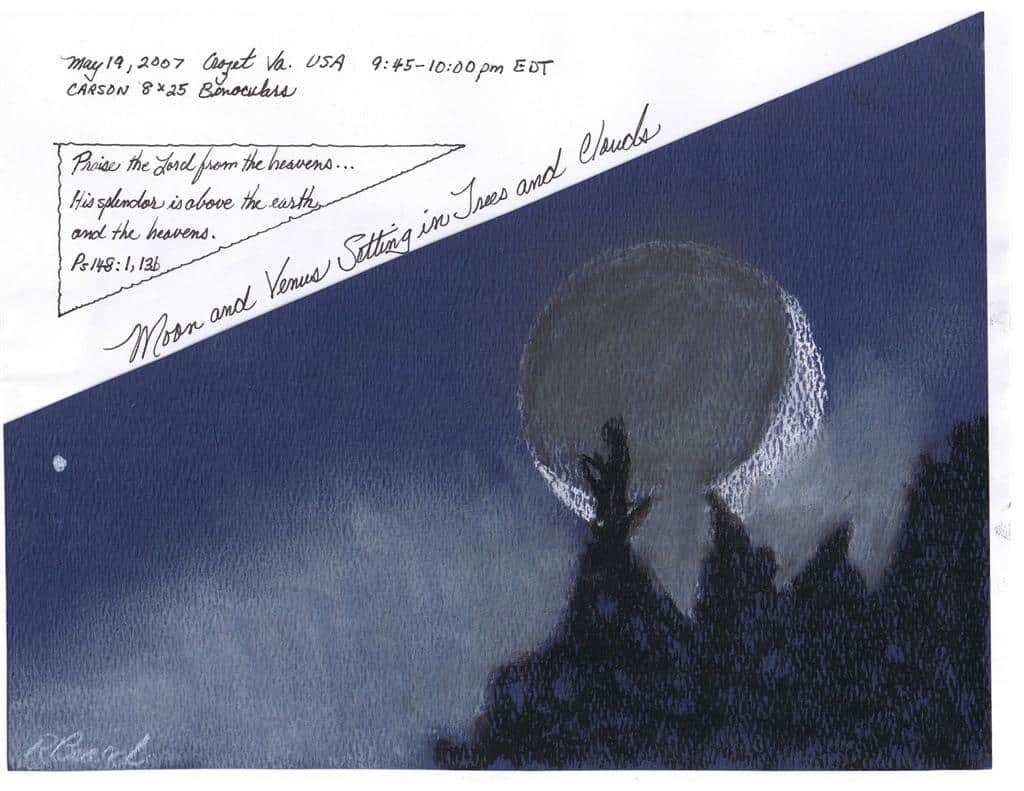 May 19, 2007 Crozet Va. USA 9:45-10:00pm EDT
CARSON 8x25 Binoculars
Praise the Lord from the heavens...
His splendor is above the earth
and the heavens.
Ps 148:1, 13b
Moon and Venus Setting in Trees and Clouds